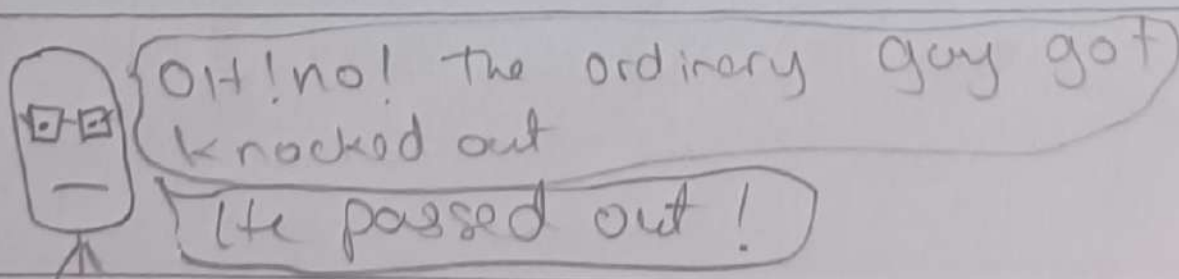 OH! no! The ordinary guy got
knocked out
He passed out!